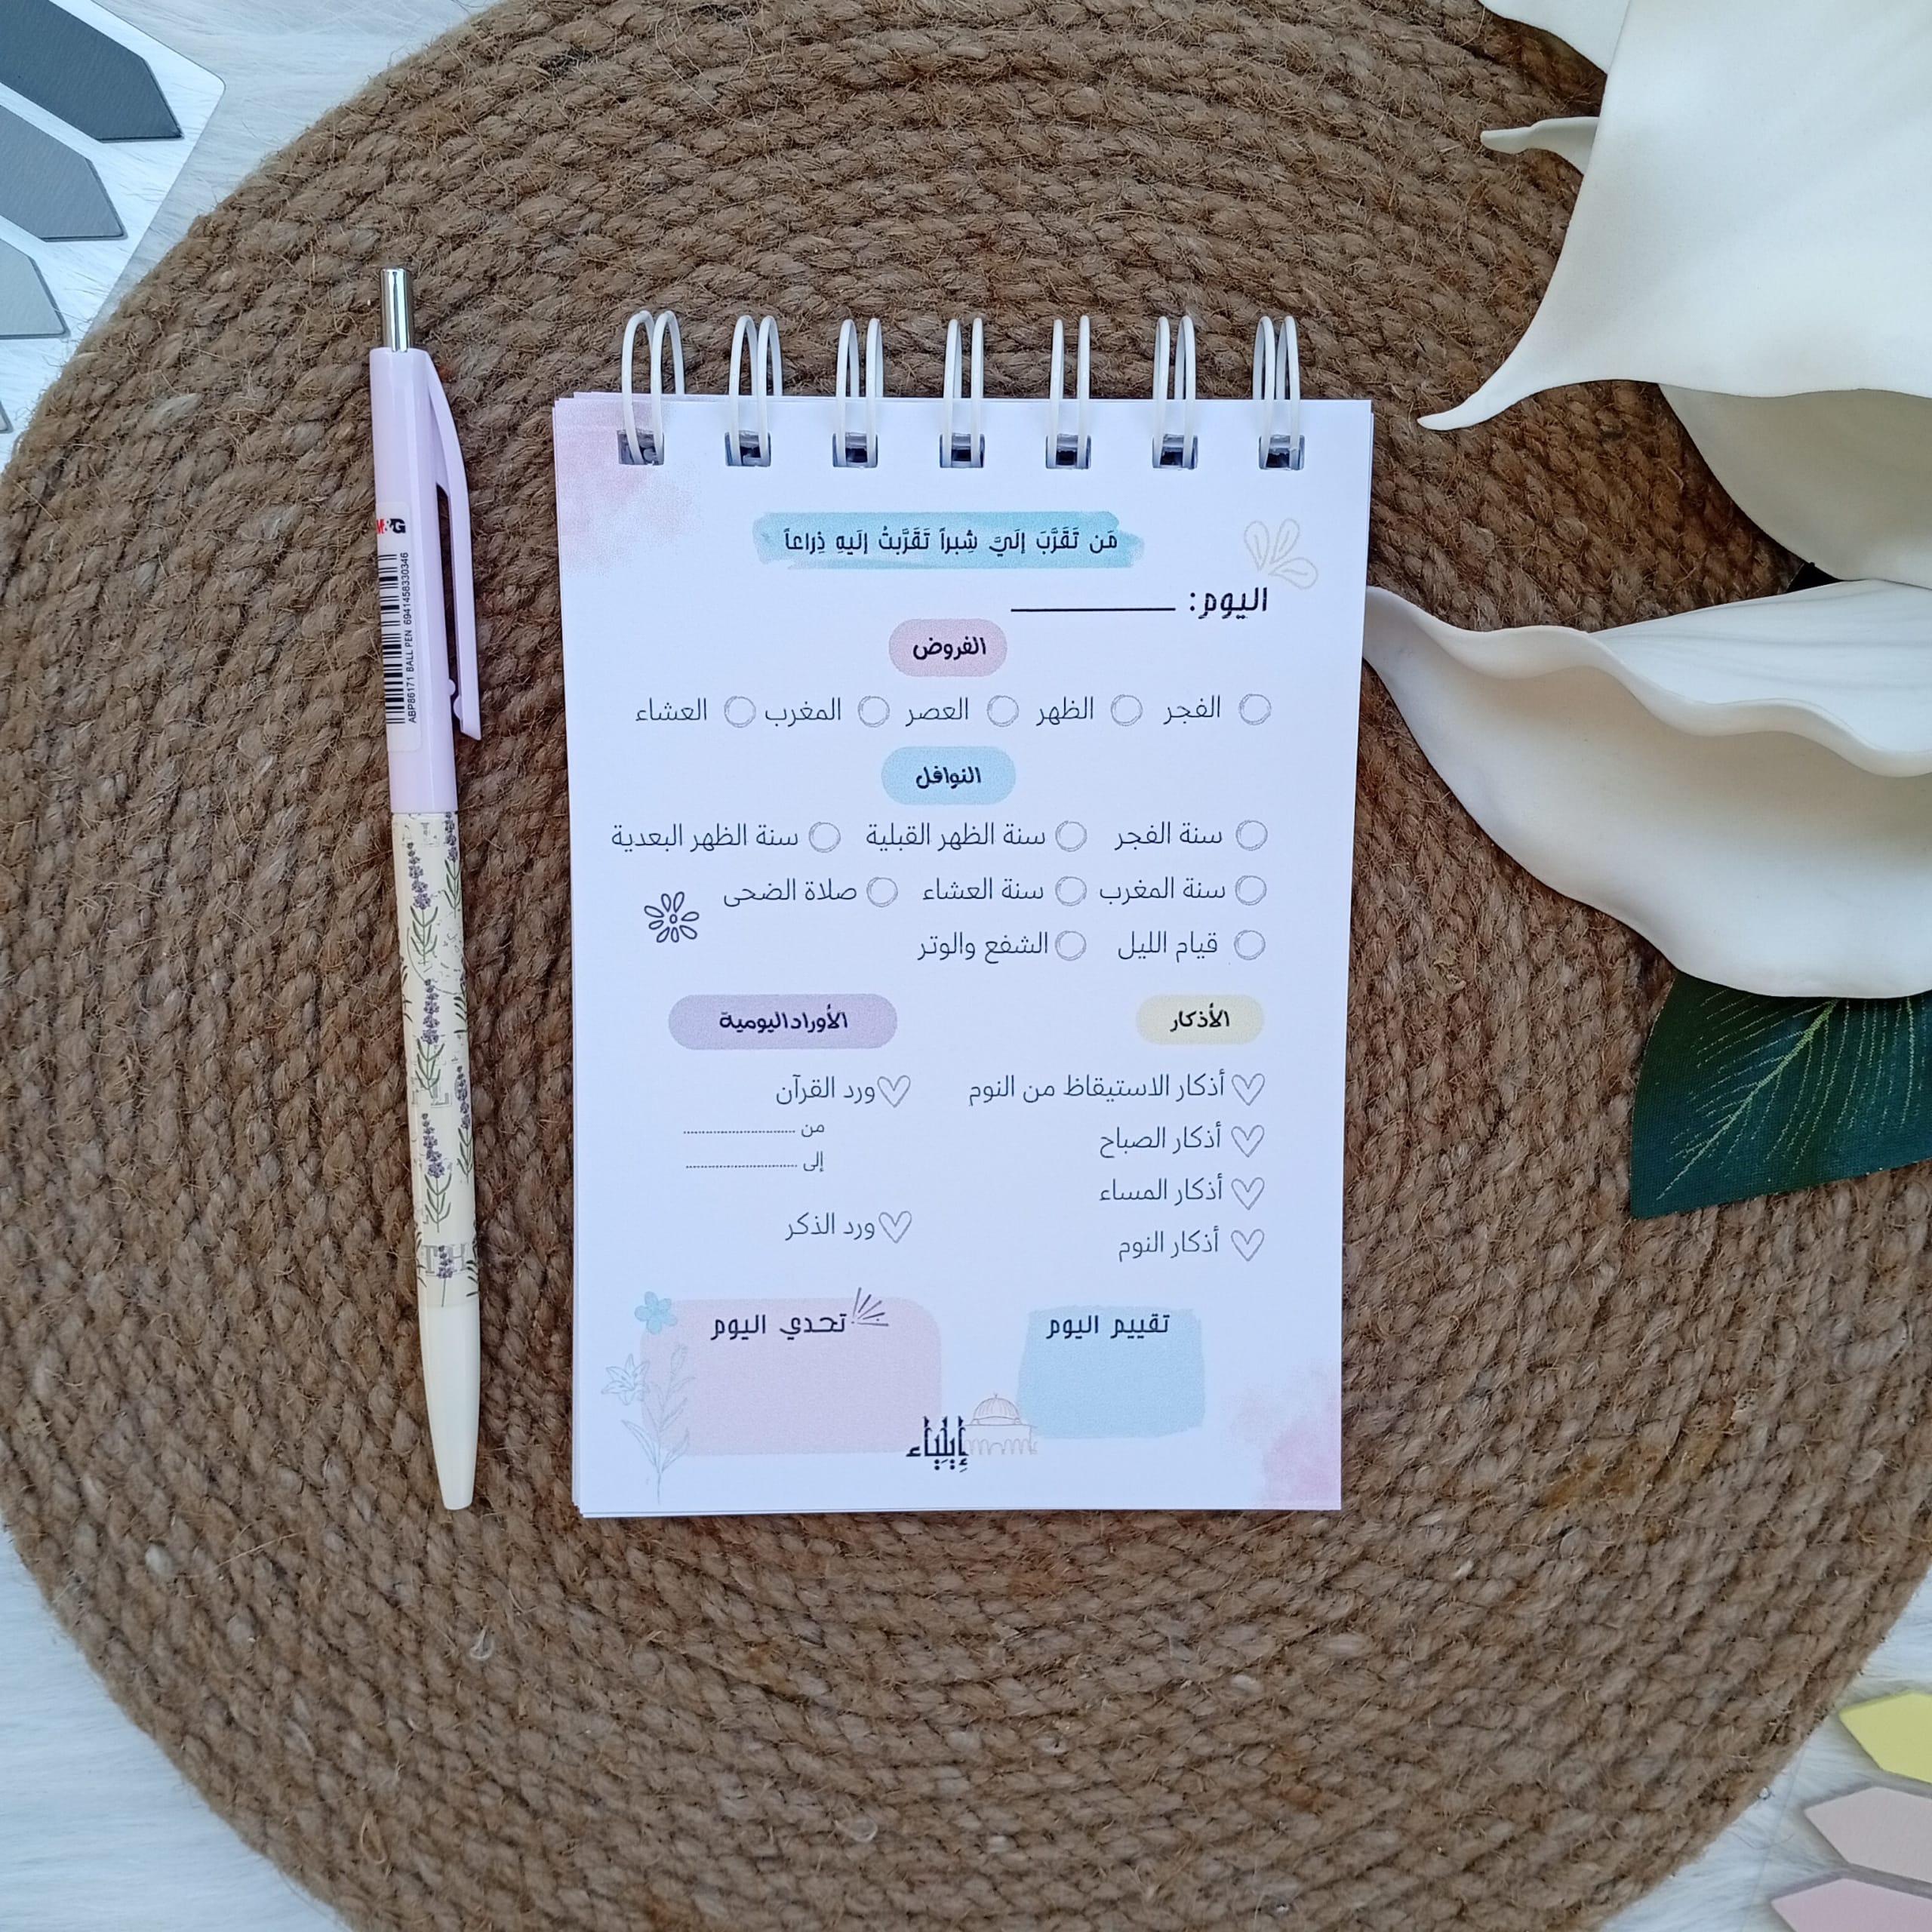 مَن تَقَرَّبَ إلَيَّ شِبراً تَقَرَّبتُ إلَيهِ ذِراعاً
اليوم:
الفروض
الفجر الظهر العصر المغرب العشاء
النوافل
سنة الفجر سنة الظهر القبلية سنة الظهر البعدية
سنة المغرب سنة العشاء صلاة الضحى
قيام الليل الشفع والوتر
الأذكار
أذكار الاستيقاظ من النوم
أذكار الصباح
أذكار المساء
أذكار النوم
الأوراد اليومية
ورد القرآن
من
إلى
ورد الذكر
تقييم اليوم
تحدي اليوم
إيلياء
M&G
ABP86171 BALL PEN 6941458330346